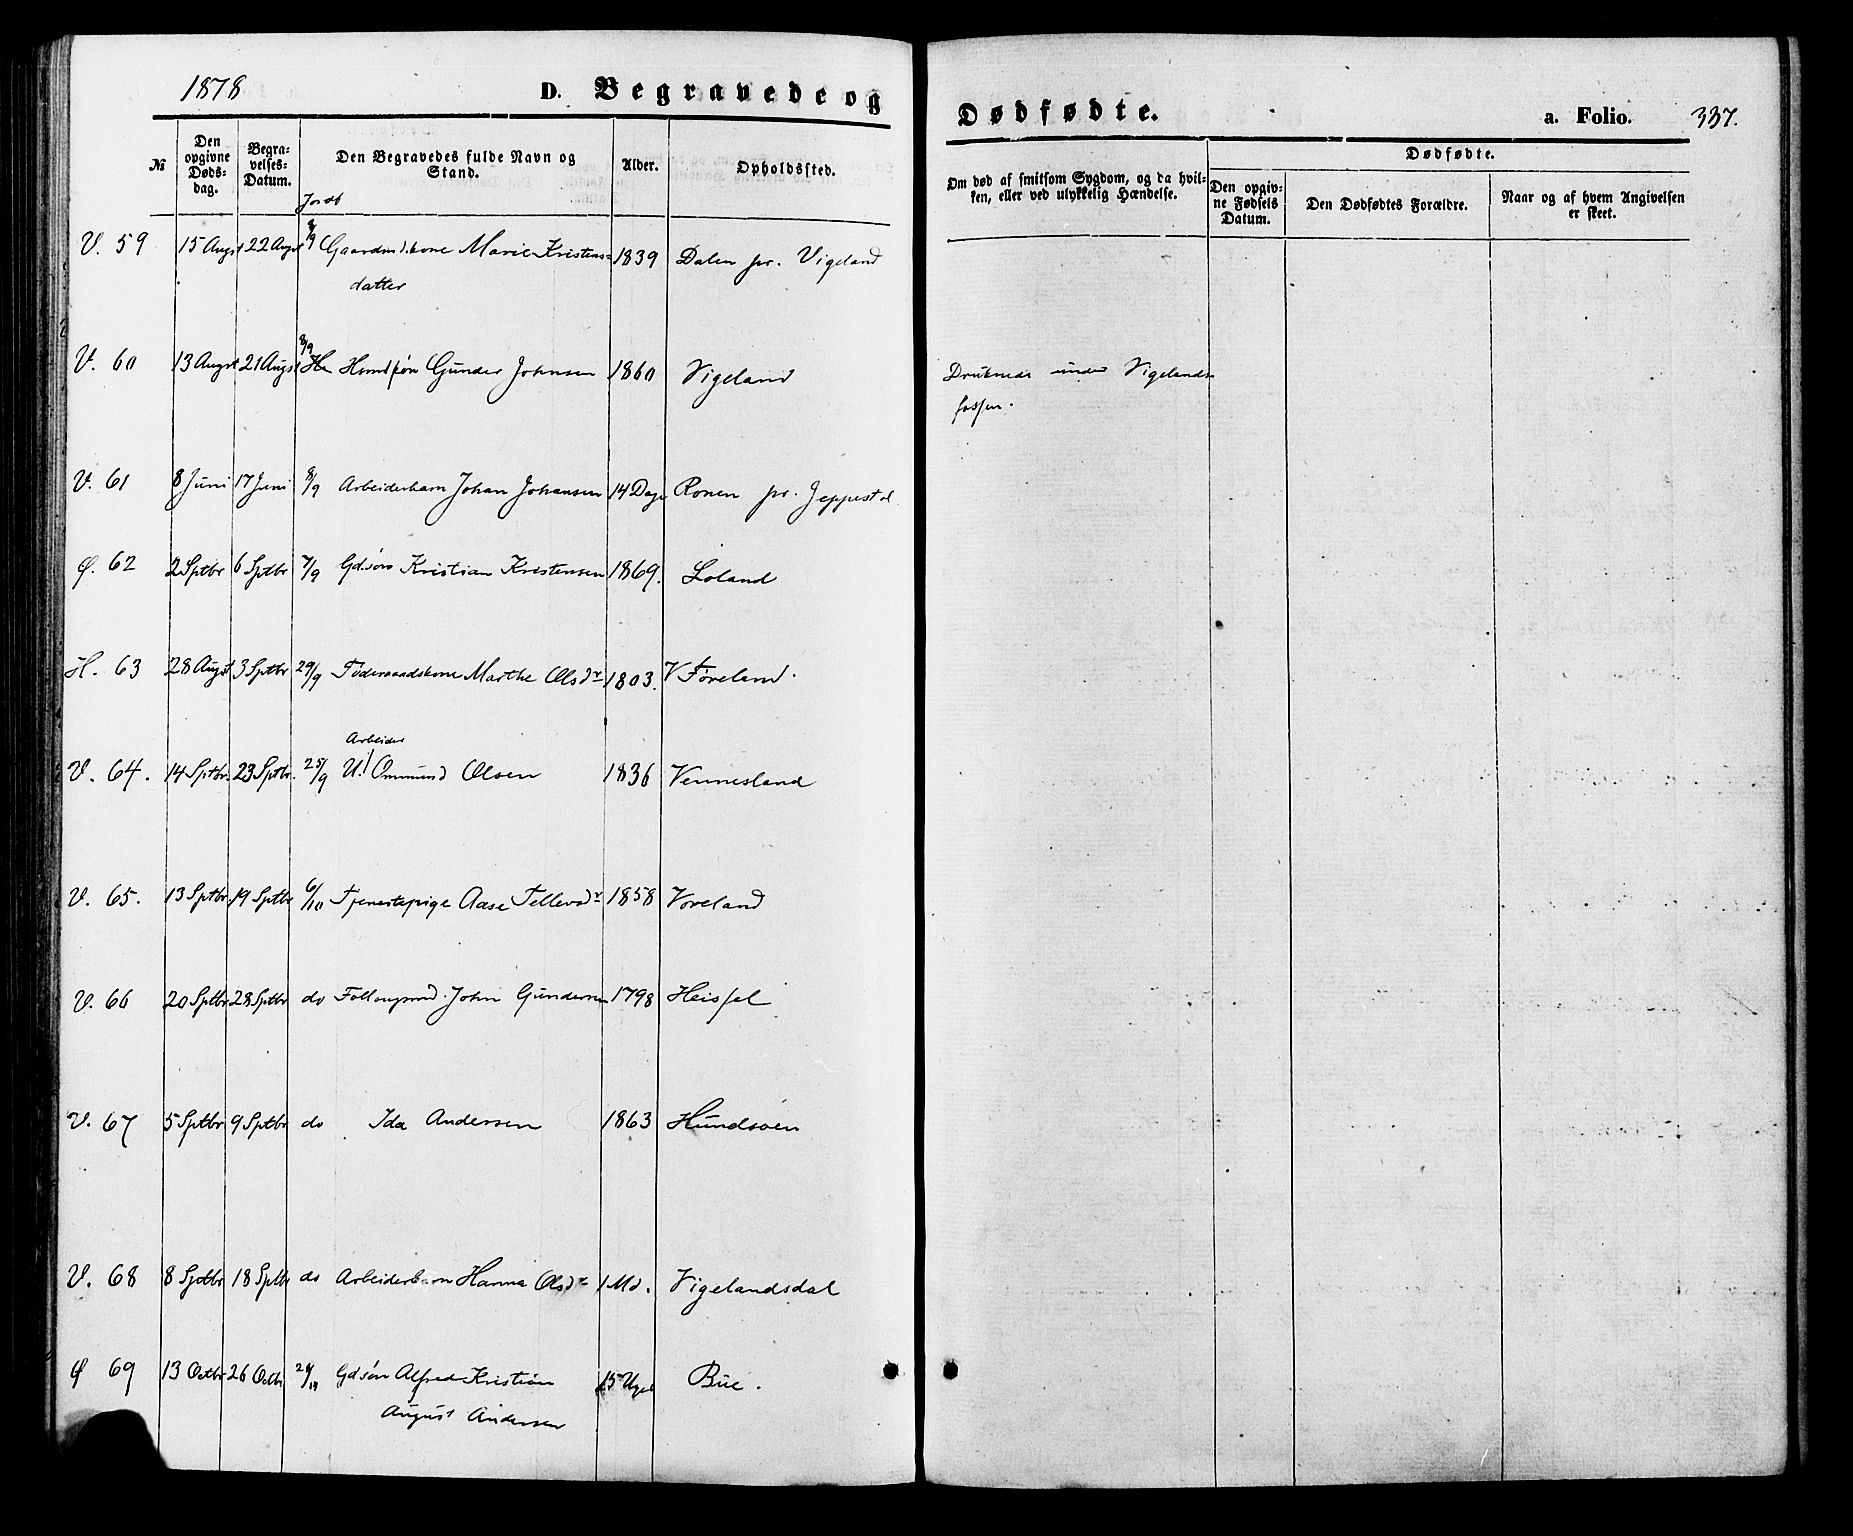 1878
D. Begravede og
Dødfødte.
a. Folio.
337.
№
Den opgivne Døds-dag.
Begra-velses-Datum.
Den Begravedes fulde Navn og Stand.
Alder.
Opholdssted.
Om død af smitsom Sygdom, og da hvil-
ken, eller ved ulykkelig Hændelse.
Dødfødte.
Den opgiv-ne Fødsels Datum.
Den Dødfødtes Forældre.
Naar og af hvem Angivelsen er skeet.
Jordf
V. 59 15 Augst 22 Augst 8/9 Gaardmdskone Marie Kristens= 1839 Dalen pr. Vigeland
datter
V. 60 13 Augst 21 Augst 8/9 Gunder Johnsen 1860 Vigeland Druknede under Vigelands=
fossen.
V. 61 8 Juni 17 Juni 8/9 Arbeiderbarn Johan Johansen 14 Dage Ronen pr. Jeppestøl
Ø. 62 2 Sptbr 6 Sptbr 7/9 Gdsøn Kristian Kristensen 1869. Loland
H. 63 28 Augst 3 Sptbr 29/9 Føderaadskone Marthe Olsdr 1803. V Føreland.
Arbeider
V. 64. 14 Sptbr. 23 Sptbr. 25/9 U. Ommund Olsen 1836 Vennesland
V. 65. 13 Sptbr. 19 Sptbr 6/10 Tjenestepige Aase Tellevsdr 1858 Voreland
V. 66 20 Sptbr 28 Sptbr do John Gundersen 1798 Heissel
V. 67 5 Sptbr 9 Sptbr do Ida Andersen 1863 Hundsøen
V. 68 8 Sptbr 18 Sptbr do Arbeiderbarn Hanna Olsdr 1 Md. Vigelandsdal
Ø 69 13 Octbr 26 Octbr Gdsøn Alfred Kristian 15 Uger Bue.
August Andersen